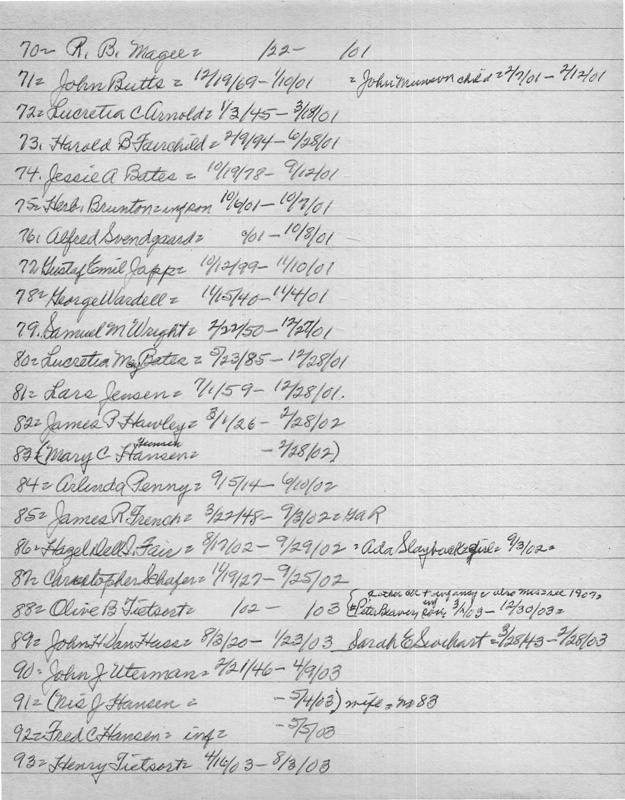 70= R. B. Magee= /22- /01
71= John Butts = 12/19/69-1/10/01 = John Munson child = 2/7/01 - 2/12/01
72= Lucretia C Arnold= 1/3/45-3/18/01
73. Harold B Fairchild = 2/9/94-6/28/01
74. Jessie A Bates = 10/19/78- 9/12/01
75= Herb. Brunton=inf son 10/6/01- 10/7/01
76. Alfred Svendgaard= /01-10/8/01
77 Gustaf Emil Japp= 10/12/99- 11/10/01
78= George Wardell= 11/15/40-11/4/01
79. Samuel M Wright= 2/22/50-12/27/01
80= Lucretia May Bates = 5/23/85-12/28/01
81= Lars Jensen = 7/1/59- 12/28/01.
82= James P Hawley= 3/1/26- 2/28/02
83 (Mary C Hansen= -2/28/02)
84= Arlinda Penny= 9/15/14-6/10/02
85= James R. French= 3/22/48- 9/3/02=GAR
86= Hazel Dell I. Fair = 8/17/02- 9/29/02 = Ada Slayback girl = 9/3/02=
87= Christopher Schafer= 11/19/27-9/25/02
88= Olive B Tietsort= /02- /03 Peter Beaver inf son; 3/2/03-12/30/03=
89= John H Van Hass= 8/3/20-1/23/03 Sarah E. =3/28/43-2/28/03
90= John J Uterman= 2/21/46- 4/9/03
91= (Nis J Hansen = -5/4/03) wife = no 83
92= Fred C Hansen = inf= -5/5/03
93= Henry Tietsort= 4/16/03-8/3/03